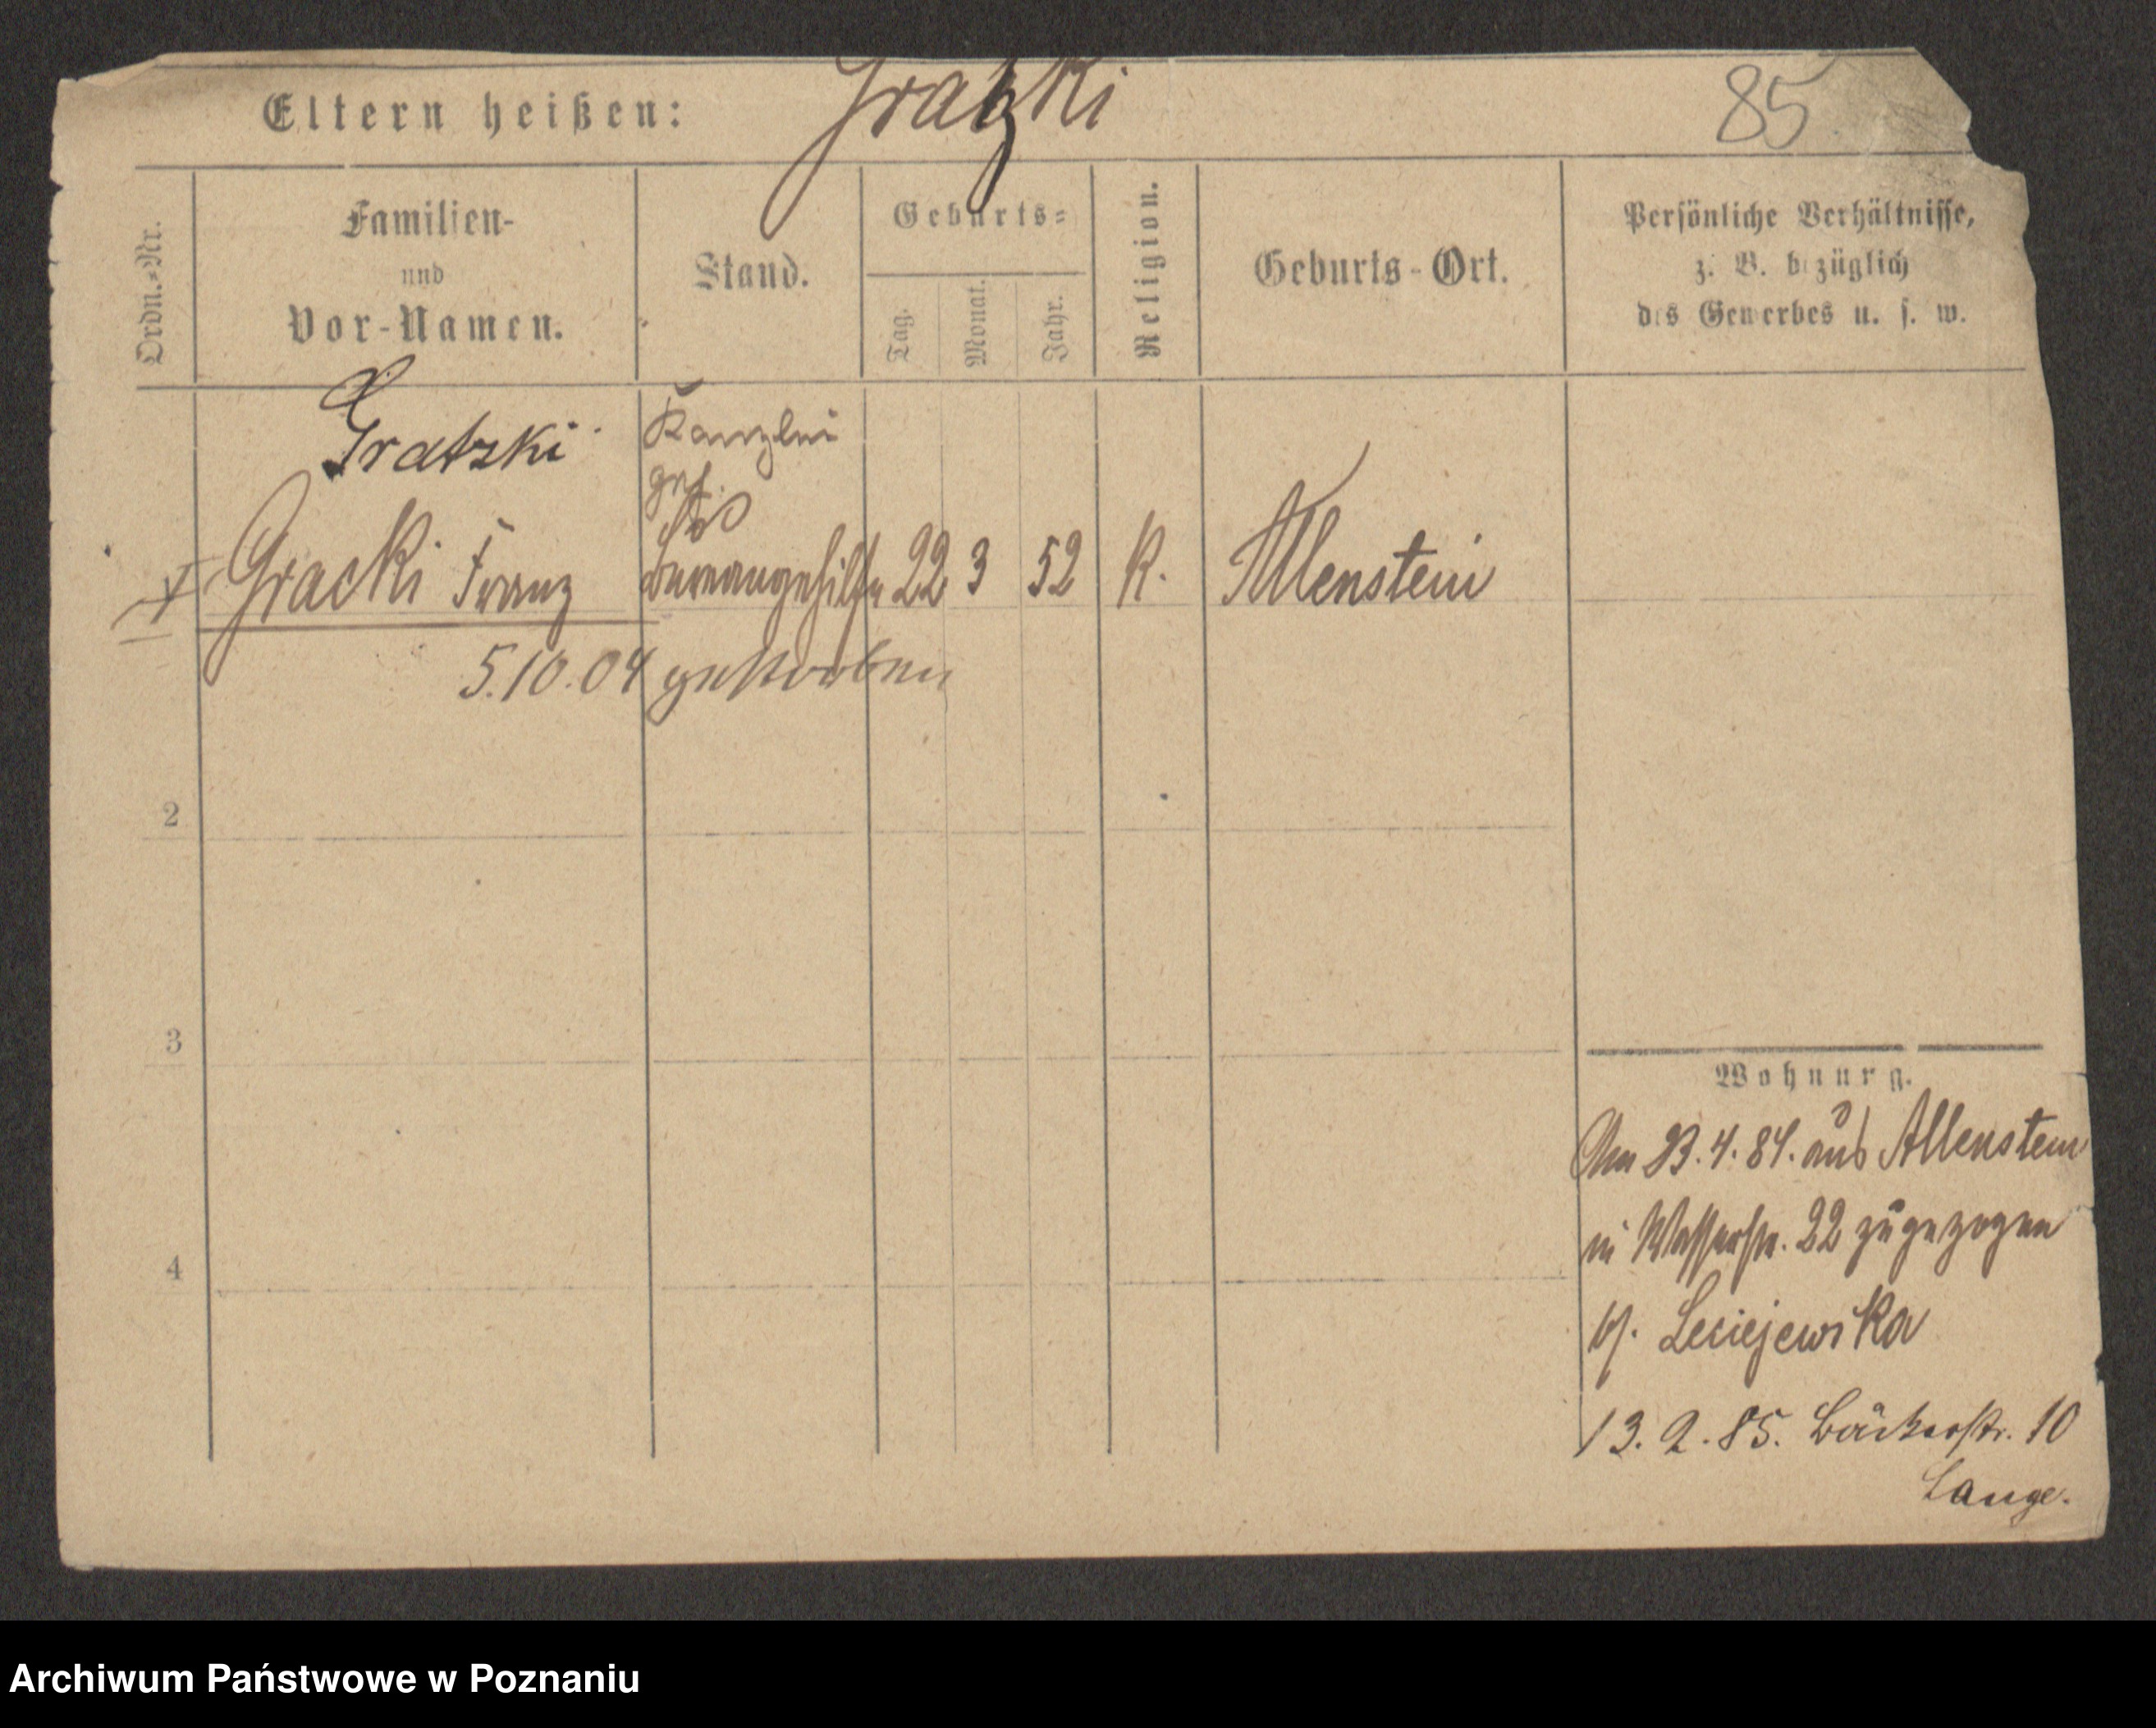 Eltern heißen: Gratzki 85
Ordn.-Nr.
Familien-
und
Vor-Namen.
Stand.
Geburts-
Tag.
Monat.
Jahr.
Religion.
Geburts-Ort.
Persönliche Verhältnisse,
z. B. bezüglich
des Gewerbes u. s. w.
Gratzki
Kanzlei
geh.
Gracki Franz Bureaugehilfe 22 3 52 K. Allenstein
5.10.04 gestorben
2
3
4
Wohnung.
Am 23.4.84. aus Allenstein
in Wasserstr. 22 zugezogen
b/. Leciejewska
13.2.85. Bäckerstr. 10
Lange.
Archiwum Państwowe w Poznaniu